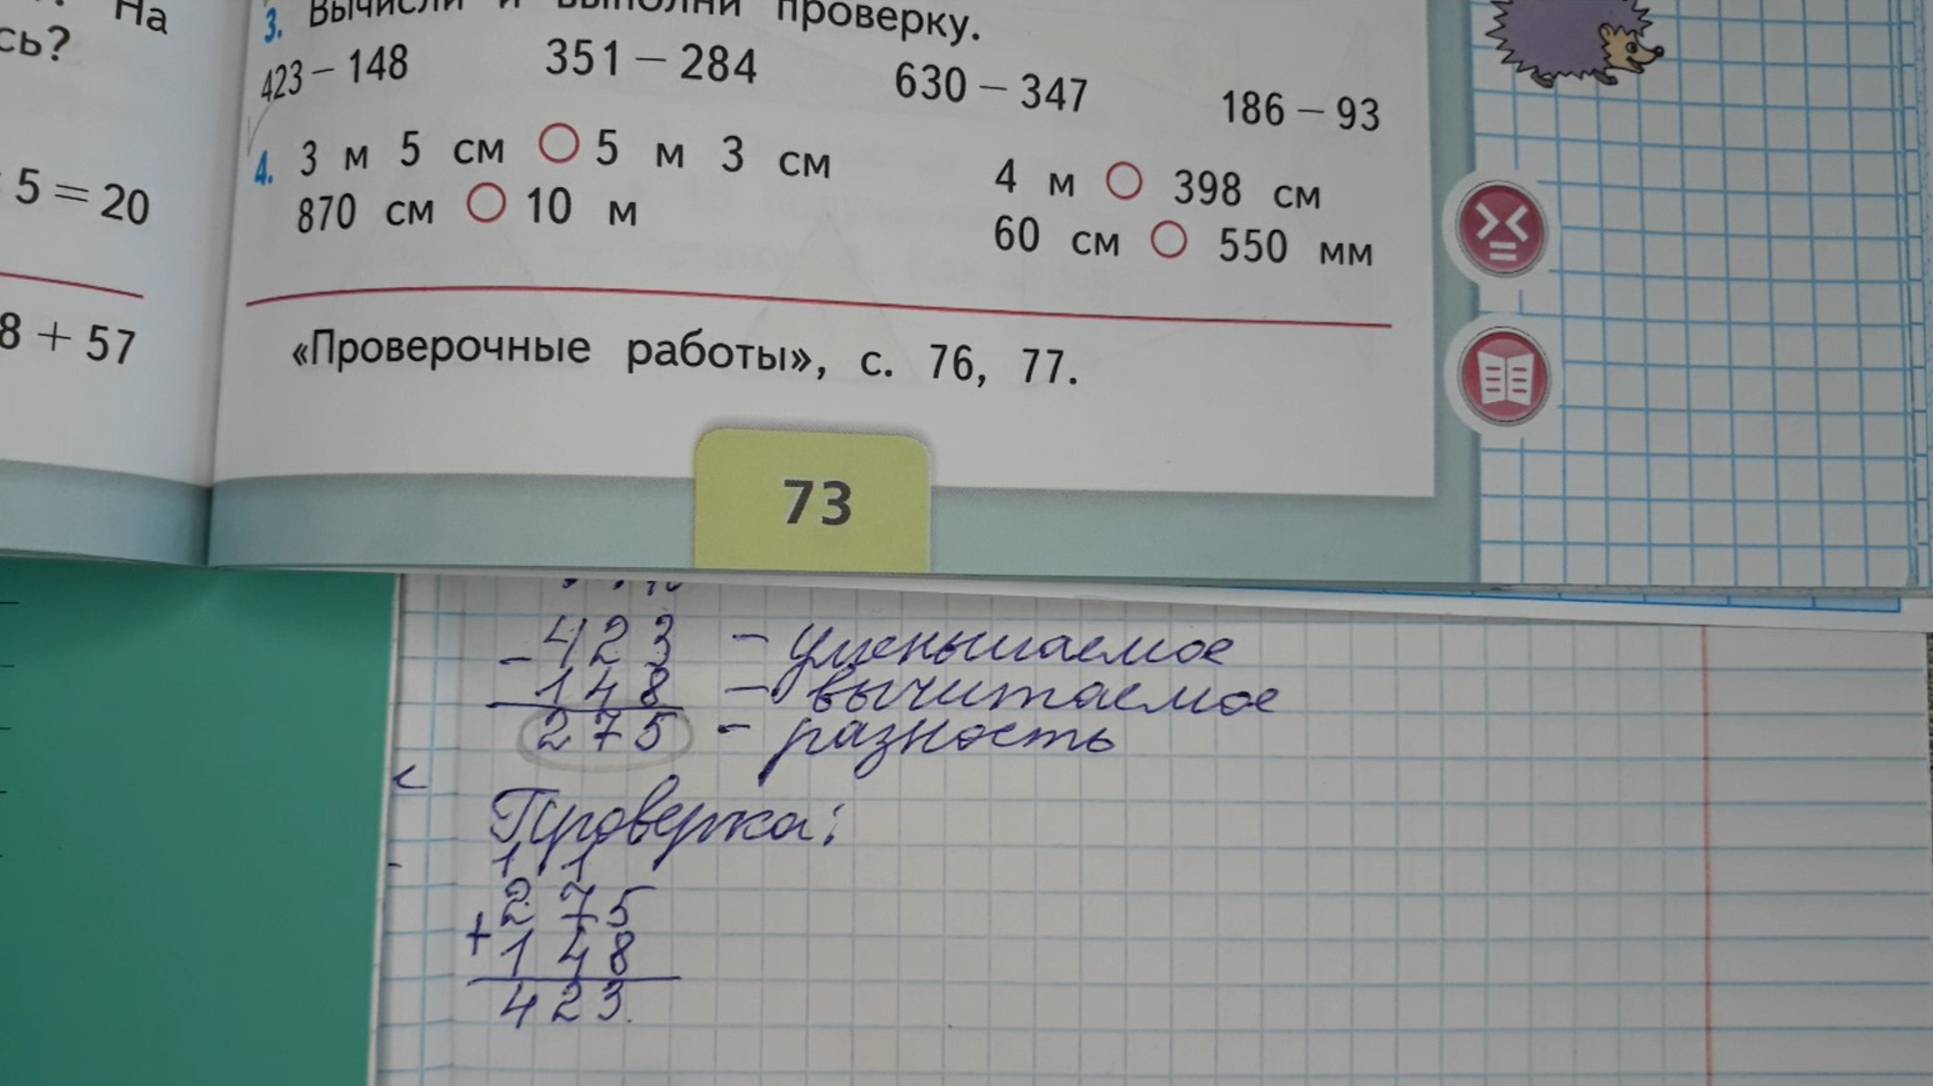 На
сь?
5 = 20
8 + 57
3. Вычисли и выполни проверку.
423 − 148 351 − 284 630 − 347 186 − 93
4. 3 м 5 см ○ 5 м 3 см 4 м ○ 398 см
870 см ○ 10 м 60 см ○ 550 мм
«Проверочные работы», с. 76, 77.
73
423 − уменьшаемое
− 148 − вычитаемое
275 − разность
Проверка:
1 1
275
+ 148
423.